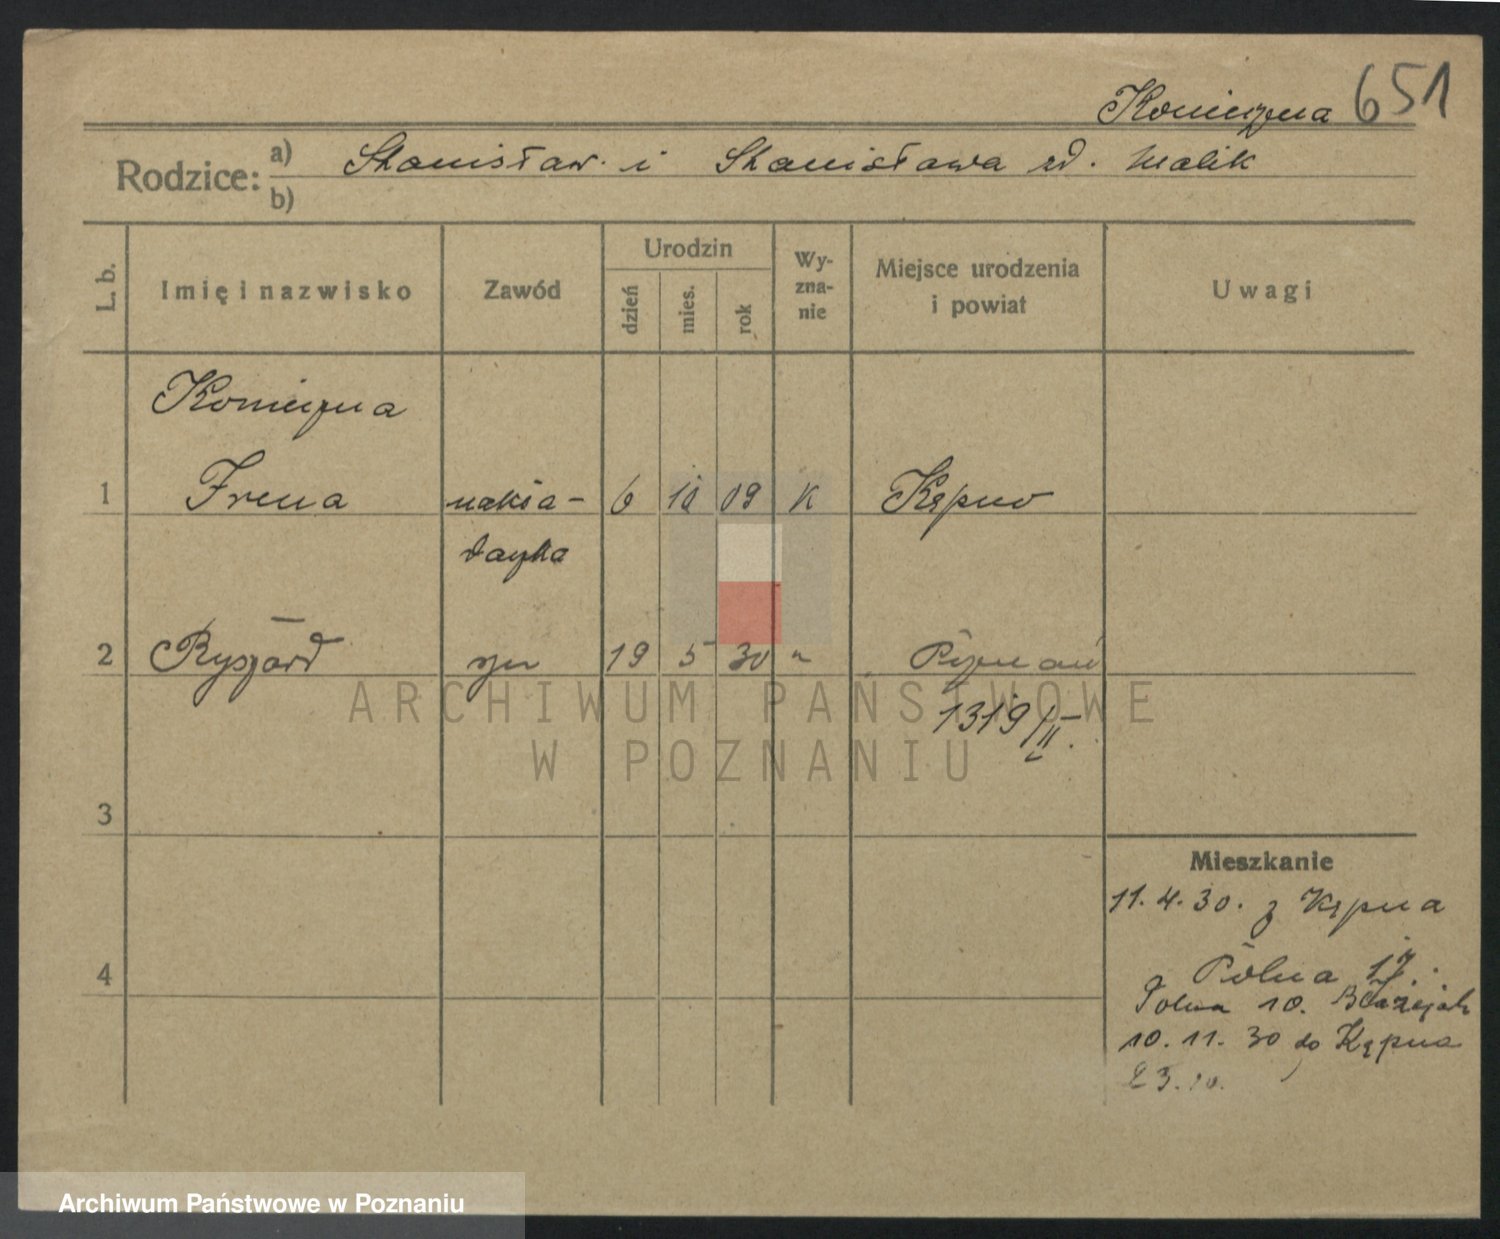 Konieczna 651
Rodzice: a) Stanisław i Stanisława zd. Malik
b)
L. b. Imię i nazwisko Zawód Urodzin dzień mies. rok Wy-zna-nie Miejsce urodzenia i powiat Uwagi
Konieczna
1 Irena nakła- 6 10 09 K Kępno
daczka
2 Ryszard syn 19 5 30 " Poznań
1319/II.
ARCHIWUM PAŃSTWOWE
W POZNANIU
3
Mieszkanie
11.4.30. z Kępna
4
Polna 17.
Polna 10. Błażejak
10.11.30 do Kępna
23.10.
Archiwum Państwowe w Poznaniu